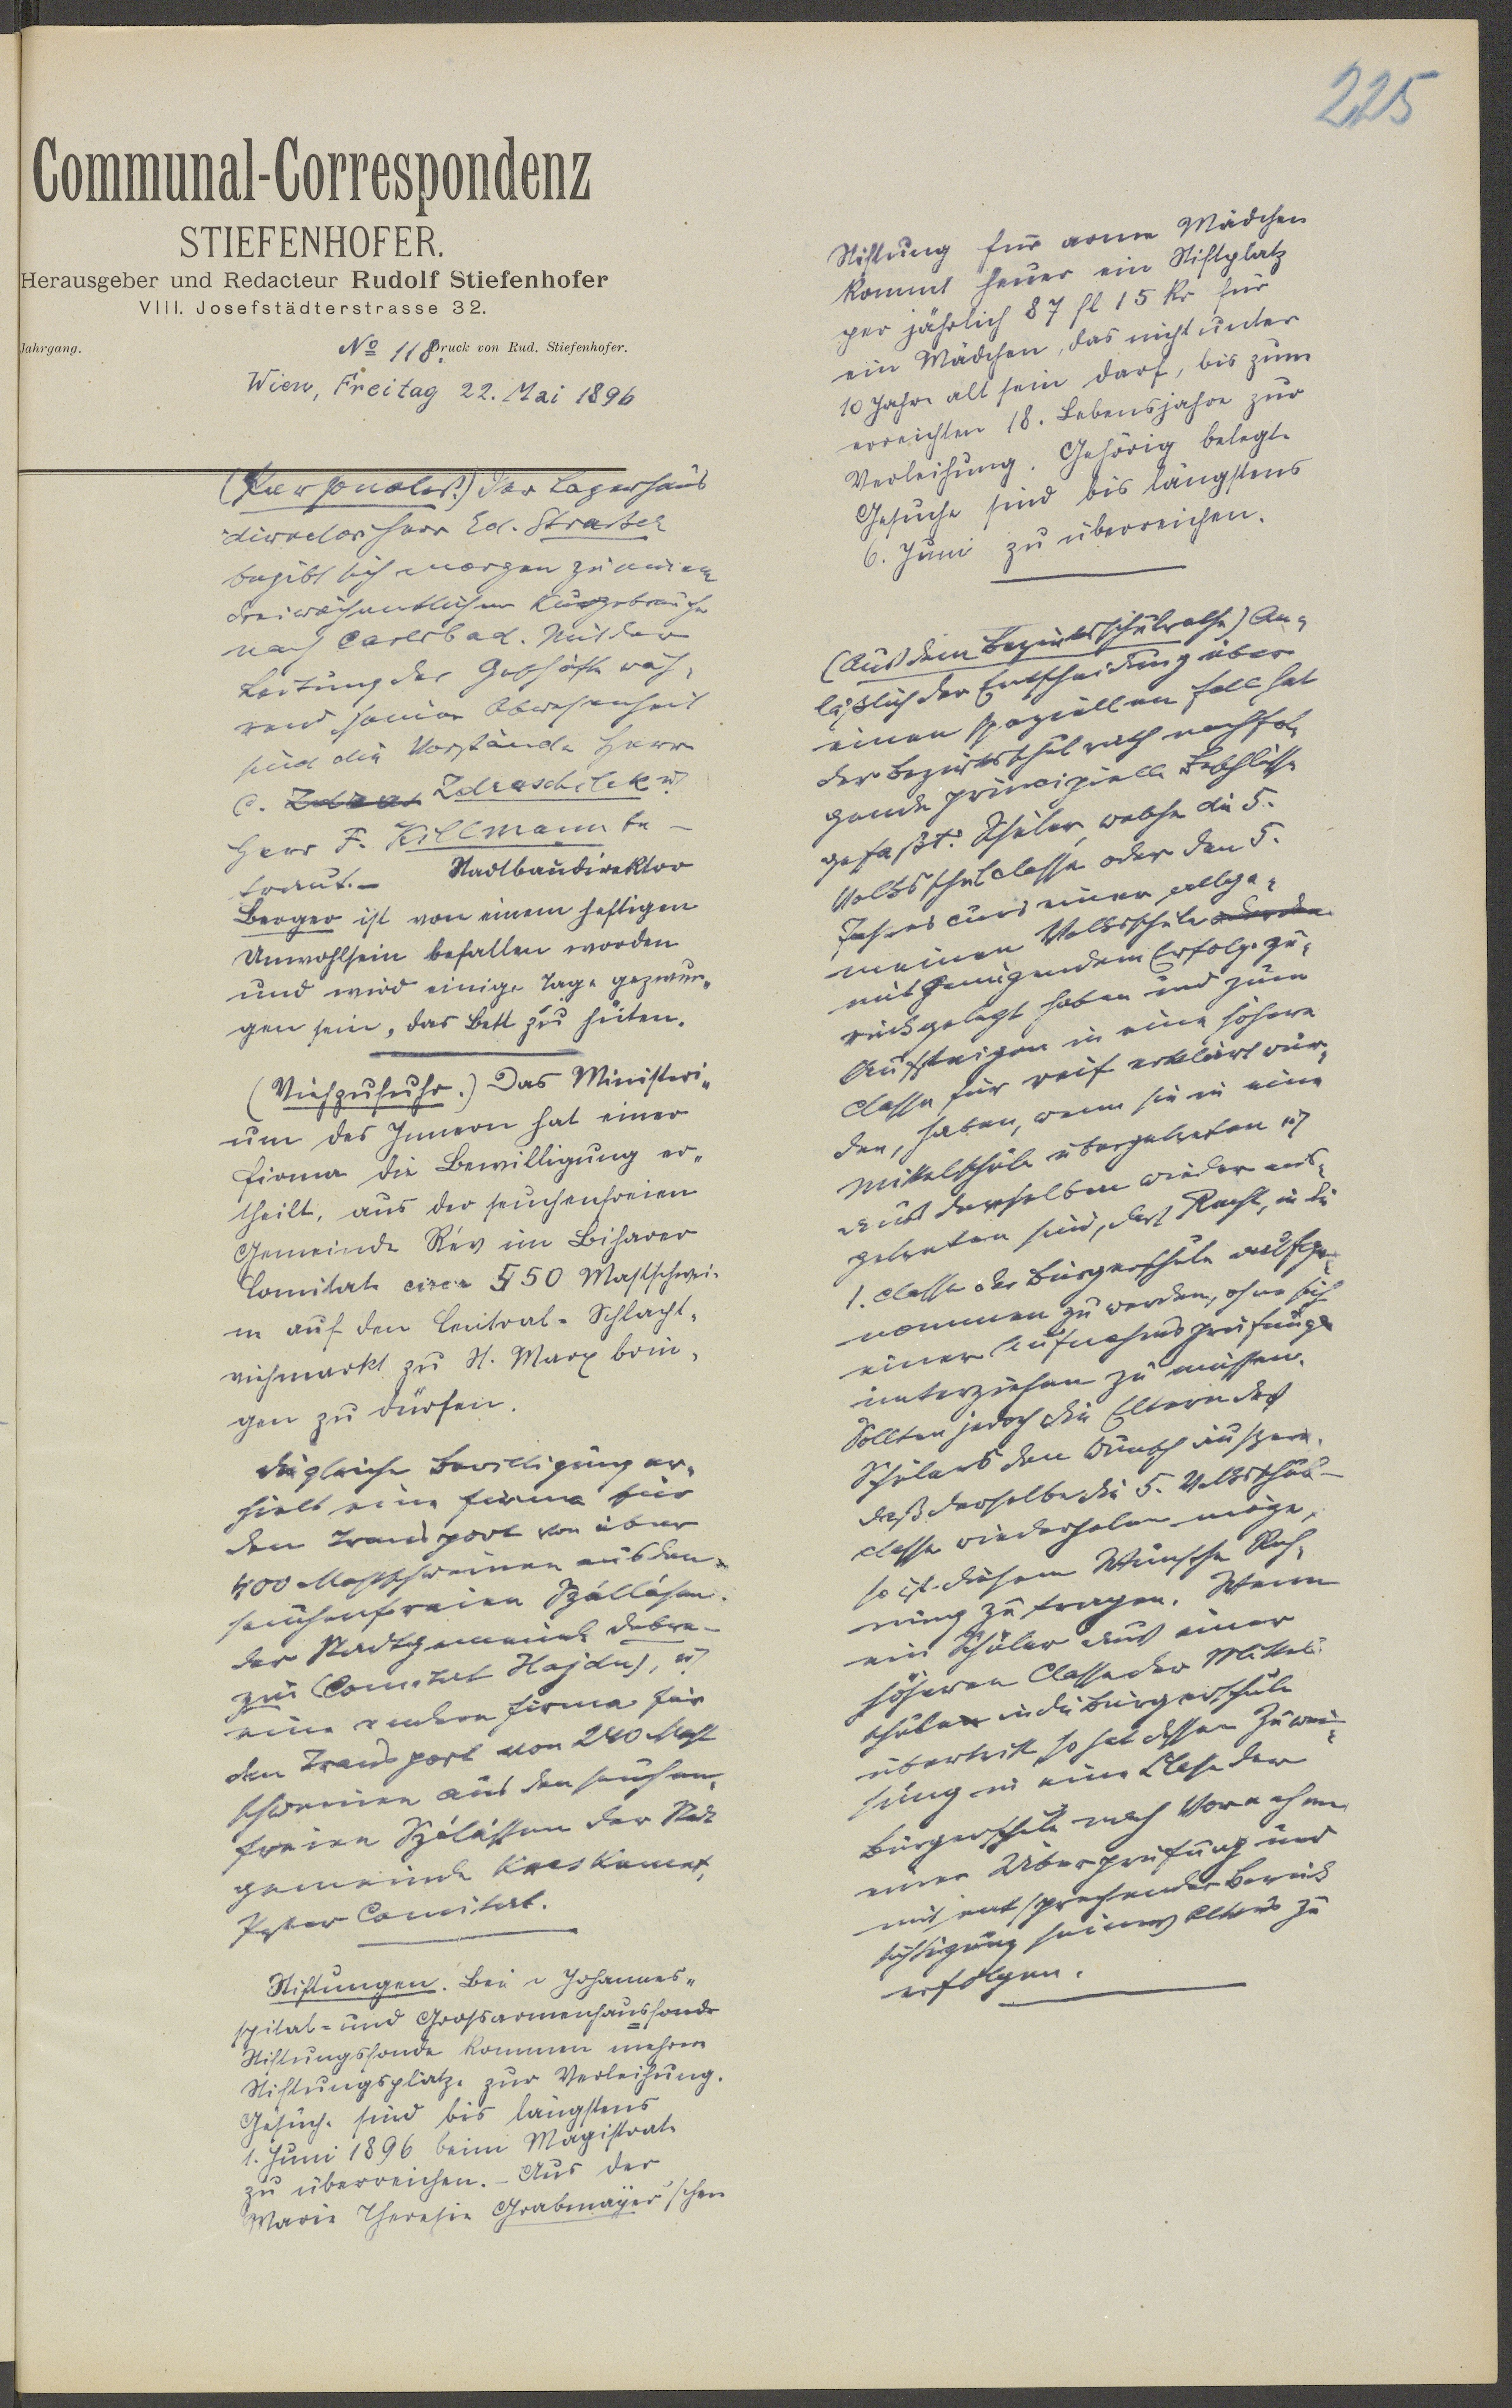 225
Communal-Correspondenz
STIEFENHOFER.
Herausgeber und Redacteur Rudolf Stiefenhofer
VIII. Josefstädterstrasse 32.
Jahrgang.
No 118.
Druck von Rud. Stiefenhofer.
Wien, Freitag 22. Mai 1896
(Personales.) Der Lagerhaus
director Herr Ed.
begibt sich morgen zu einem
dreiwöchentlichen Kurgebrauche
nach Carlsbad. Mit der
Leitung der Geschäfte wäh-
rend seiner Abwesenheit
sind die Vorstände Herr
C. Zdraschilek u
Herr F. Killmann be-
traut. – Stadtbaudirektor
Berger ist von einem heftigen
Unwohlsein befallen worden
und wird einige Tage gezwun-
gen sein, das Bett zu hüten.
(Viehzufuhr.) Das Ministeri-
um des Innern hat einer
Firma die Bewilligung er-
theilt, aus der seuchenfreien
Gemeinde Rév im Biharer
Comitate circa 550 Mastschwei-
ne auf den Central-Schlacht-
viehmarkt zu St. Marx brin-
gen zu dürfen.
Die gleiche Bewilligung er-
hielt eine Firma für
den Transport von über
400 Mastschweinen aus den
seuchenfreien Szállásen
der Stadtgemeinde Debre-
zin (Comitat Hajdu), u
eine andere Firma für
den Transport von 240 Mast
schweinen aus den seuchen-
freien Szálássen der Stadt
gemeinde Kecskemet,
Pester Comitat.
Stiftungen. Beim Johannes-
spital- und Grossarmenhausfonde
Stiftungsfonde kommen mehrere
Stiftungsplätze zur Verleihung.
Gesuche sind bis längstens
1. Juni 1896 beim Magistrate
zu überreichen. – Aus der
Marie Theresie Grabmayer'schen
Stiftung für arme Mädchen
kommt heuer ein Stiftplatz
per jährlich 87 fl 15 kr für
ein Mädchen, das nicht unter
10 Jahre alt sein darf, bis zum
erreichten 18. Lebensjahre zur
Verleihung. Gehörig belegte
Gesuche sind bis längstens
6. Juni zu überreichen.
(Aus dem Bezirksschulrathe) An-
läßlich der Entscheidung über
einen speziellen Fall hat
der Bezirksschulrath nachfol-
gende principielle Beschlüsse
gefaßt: Schüler, welche die 5.
Volksschulclasse oder den 5.
Jahrescurs einer allge-
meinen Volksschule
mit genügendem Erfolge zu-
rückgelegt haben und zum
Aufsteigen in eine höhere
Classe für reif erklärt wur-
den, haben, wenn sie in eine
Mittelschule übergetreten u
aus derselben wieder aus-
getreten sind, das Recht, in die
1. Classe der Bürgerschule aufge-
nommen zu werden, ohne sich
einer Aufnahmsprüfung
unterziehen zu müssen.
Sollten jedoch die Eltern des
Schülers den Wunsch äußern,
daß derselbe die 5. Volksschul-
classe wiederholen möge,
so ist diesem Wunsche Rech-
nung zu tragen. Wenn
ein Schüler aus einer
höheren Classe der Mittel-
schule in die Bürgerschule
übertritt, so hat dessen Zuwei-
sung in eine Classe der
Bürgerschule nach Vornahme
einer Überprüfung und
mit entsprechender Berück
sichtigung seines Alters zu
erfolgen.